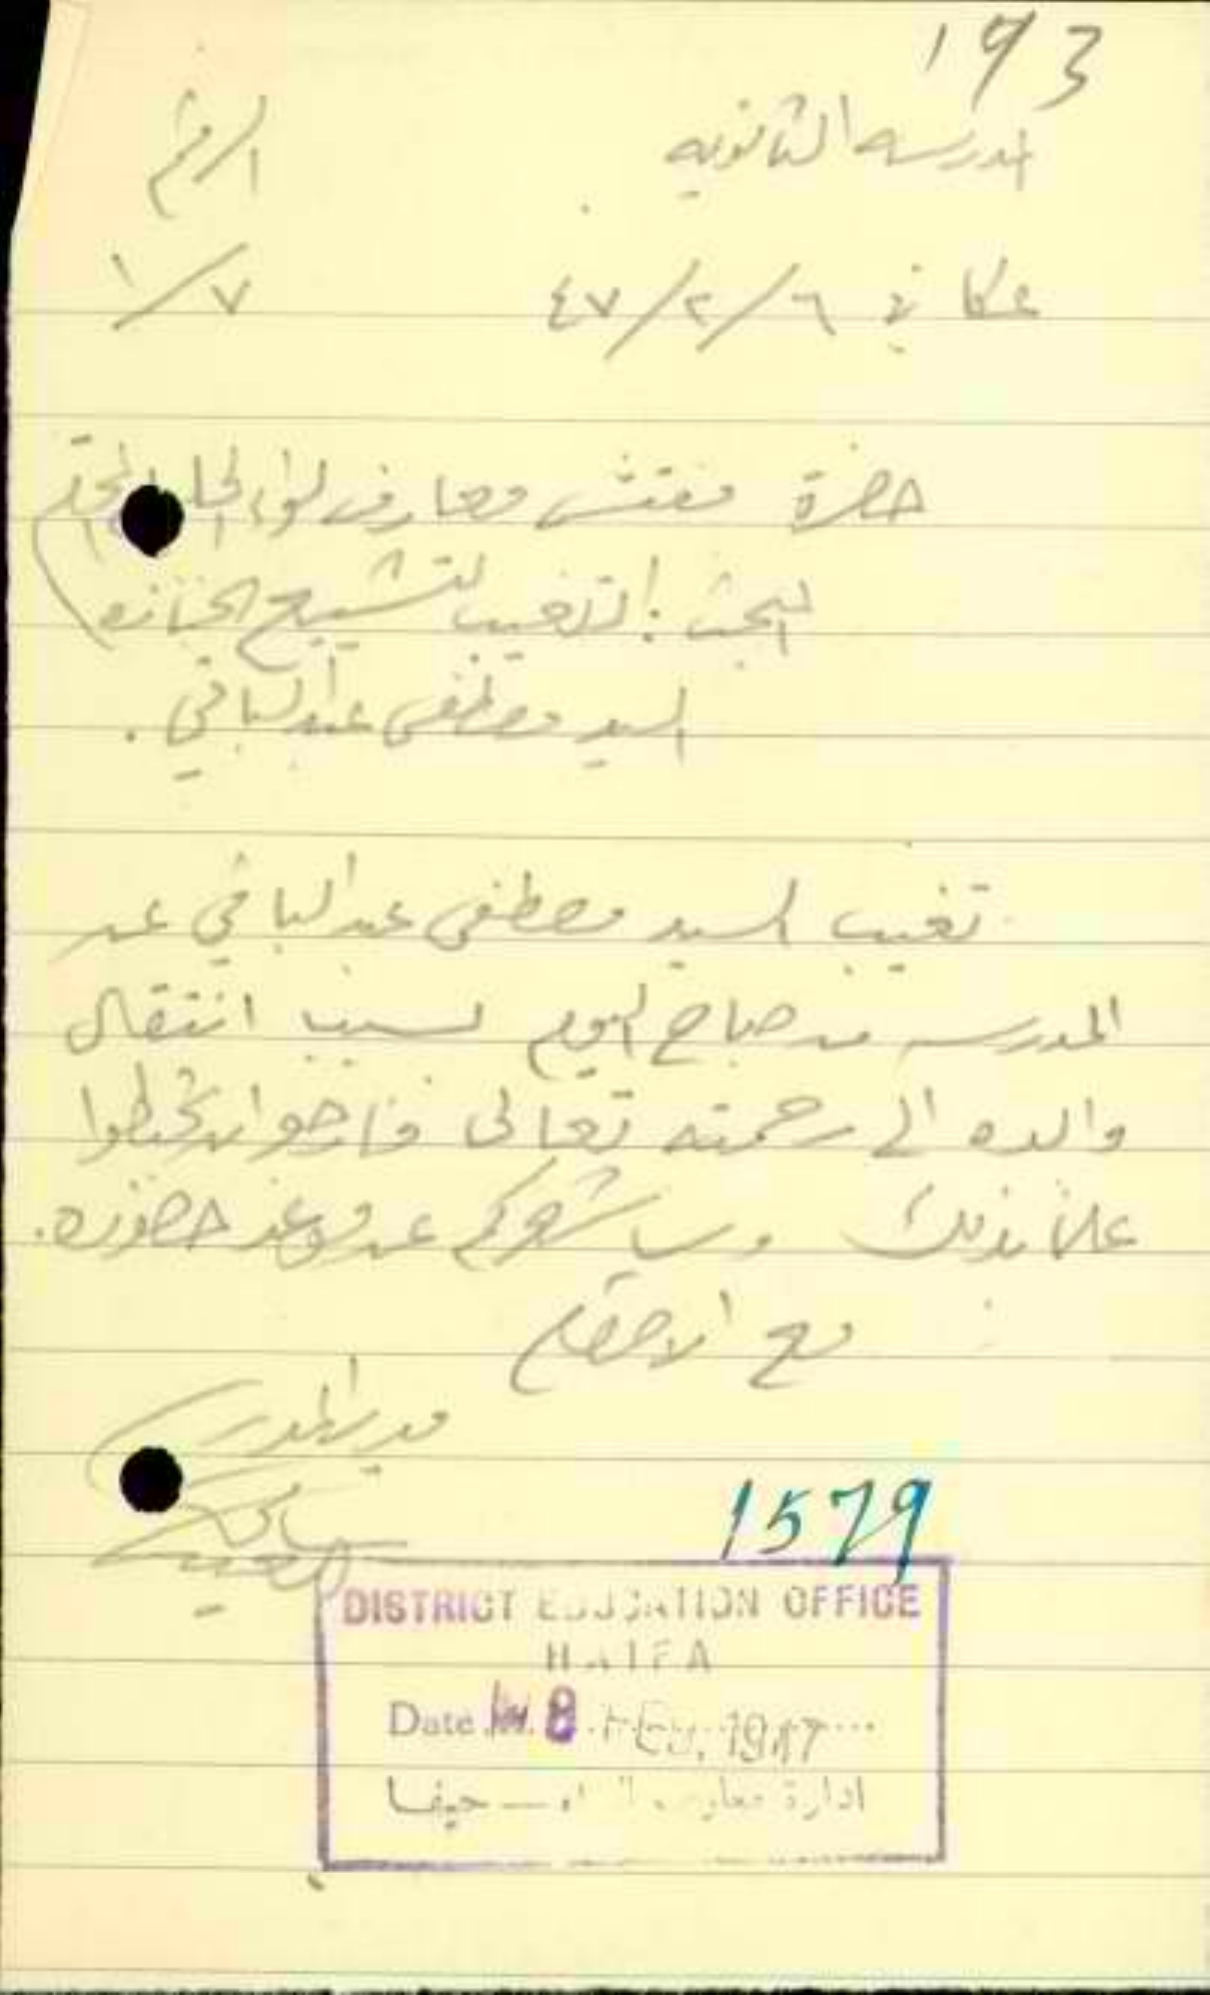 193
المدرسه الثانويه
الرقم
عكا في ٦/٢/٤٧
٧/١
حضرة مفتش معارف لواء الجليل المحترم
البحث : التغيب لتشييع الجنازه
السيد مصطفى عبد الباقي .
تغيب السيد مصطفى عبد الباقي عن
المدرسه من صباح اليوم لسبب انتقال
والده الى رحمته تعالى فارجو ان تحيطوا
علما بذلك وسأشعركم عن موعد حضوره .
مع الاحترام
مدير المدرسه
1579
DISTRICT EDUCATION OFFICE
HAIFA
Date 8 FEB. 1947
ادارة معارف اللواء — حيفا